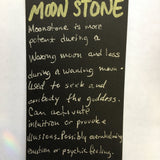 MOON STONE
Moonstone is more
potent during a
Waxing moon and less
during a waning moon.
Used to seek and
embody the goddess.
Can activate
intuition or provoke
illusions. Possibly awakening
emotion or psychic feeling.